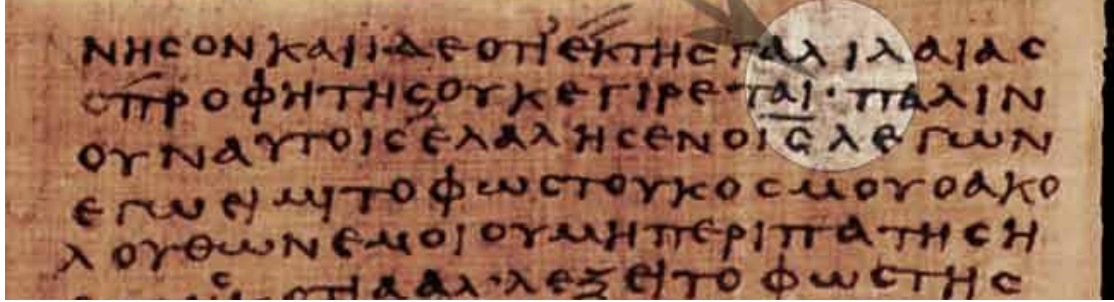 ΝΗCΟΝΚΑΙΙΔΕΟΤΙΕΚΤΗCΓΑΛΙΛΑΙΑC
ΟΠΡΟΦΗΤΗCΟΥΚΕΓΙΡΕΤΑΙ·ΠΑΛΙΝ
ΟΥΝΑΥΤΟΙCΕΛΑΛΗCΕΝΟΙ̅C̅ΛΕΓΩΝ
ΕΓΩΕΙΜΙΤΟΦΩCΤΟΥΚΟCΜΟΥΟΑΚΟ
ΛΟΥΘΩΝΕΜΟΙΟΥΜΗΠΕΡΙΠΑΤΗCΗ
ΚΟΤΙΑΑΛ·ΛΕΞΕΙΤΟΦΩCΤΗC